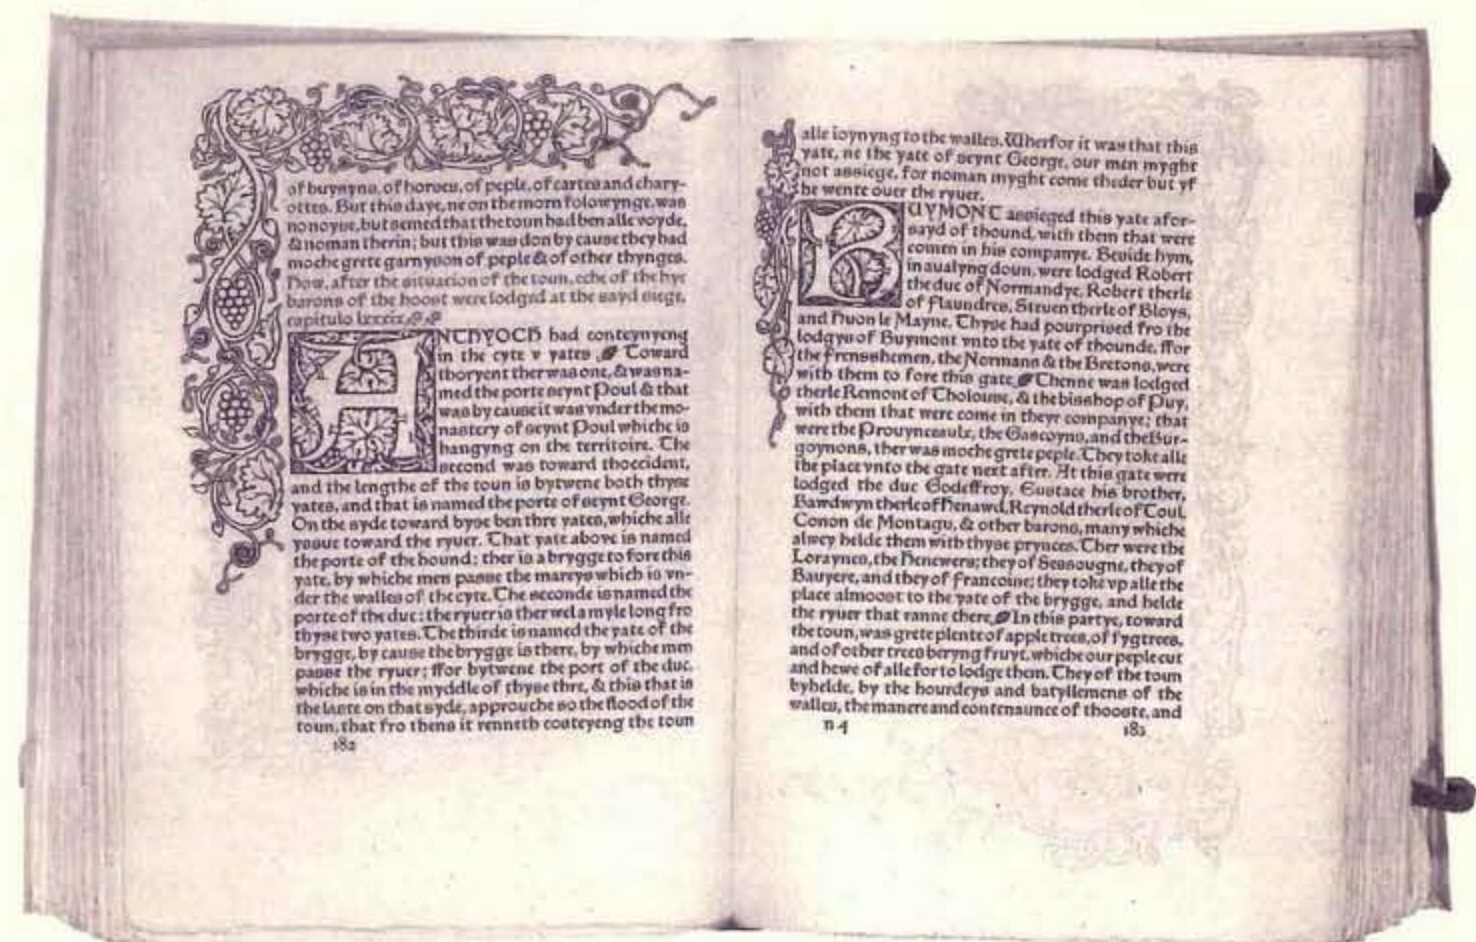 of buysyns, of horses, of peple, of cartes and chary-
ottes. But this daye, ne on the morn folowynge, was
no noyse, but semed that the toun had ben alle voyde,
& noman therin; but this was don by cause they had
moche grete garnyson of peple & of other thynges.
How, after the situacion of the toun, eche of the hye
barons of the hoost were lodged at the sayd siege,
capitulo lxxxix
ANTHYOCH had conteynyng
in the cyte v yates. Toward
thoryent ther was one, & was na-
med the porte seynt Poul & that
was by cause it was vnder the mo-
nastery of seynt Poul whiche is
hangyng on the territoire. The
second was toward thoccident,
and the lengthe of the toun is bytwene both thyse
yates, and that is named the porte of seynt George.
On the syde toward byse ben thre yates, whiche alle
yssue toward the ryuer. That yate above is named
the porte of the hound: ther is a brygge to fore this
yate, by whiche men passe the mareys which is vn-
der the walles of the cyte. The seconde is named the
porte of the duc: the ryuer is ther wel a myle long fro
thyse two yates. The thirde is named the yate of the
brygge, by cause the brygge is there, by whiche men
passe the ryuer; ffor bytwene the port of the duc,
whiche is in the myddle of thyse thre, & this that is
the laste on that syde, approuche so the flood of the
toun, that fro thens it renneth costeyeng the toun
182
alle ioynyng to the walles. Wherfor it was that this
yate, ne the yate of seynt George, our men myght
not assiege, for noman myght come theder but yf
he wente ouer the ryuer.
BUYMONT assieged this yate afor-
sayd of thound, with them that were
comen in his companye. Beside hym,
in aualyng doun, were lodged Robert
the duc of Normandye, Robert therle
of Flaundres, Steuen therle of Bloys,
and Huon le Mayne. Thyse had pourprised fro the
lodgys of Buymont vnto the yate of thounde, ffor
the Frensshemen, the Normans & the Bretons, were
with them to fore this gate. Thenne was lodged
therle Remont of Tholouse, & the bisshop of Puy,
with them that were come in theyr companye; that
were the Prouynceaulx, the Gascoyns, and the Bur-
goynons, ther was moche grete peple. They toke alle
the place vnto the gate next after. At this gate were
lodged the duc Godeffroy, Eustace his brother,
Bawdwyn therle of Henawd, Reynold therle of Toul,
Conon de Montagu, & other barons, many whiche
alwey helde them with thyse prynces. Ther were the
Loraynes, the Henewers; they of Sessougne, they of
Bauyere, and they of Francoine; they toke vp alle the
place almoost to the yate of the brygge, and helde
the ryuer that ranne there. In this partye, toward
the toun, was grete plente of apple trees, of fygtrees,
and of other trees beryng fruyt, whiche our peple cut
and hewe of alle for to lodge them. They of the toun
byhelde, by the hourdeys and batyllemens of the
walles, the manere and contenaunce of thooste, and
n 4
183